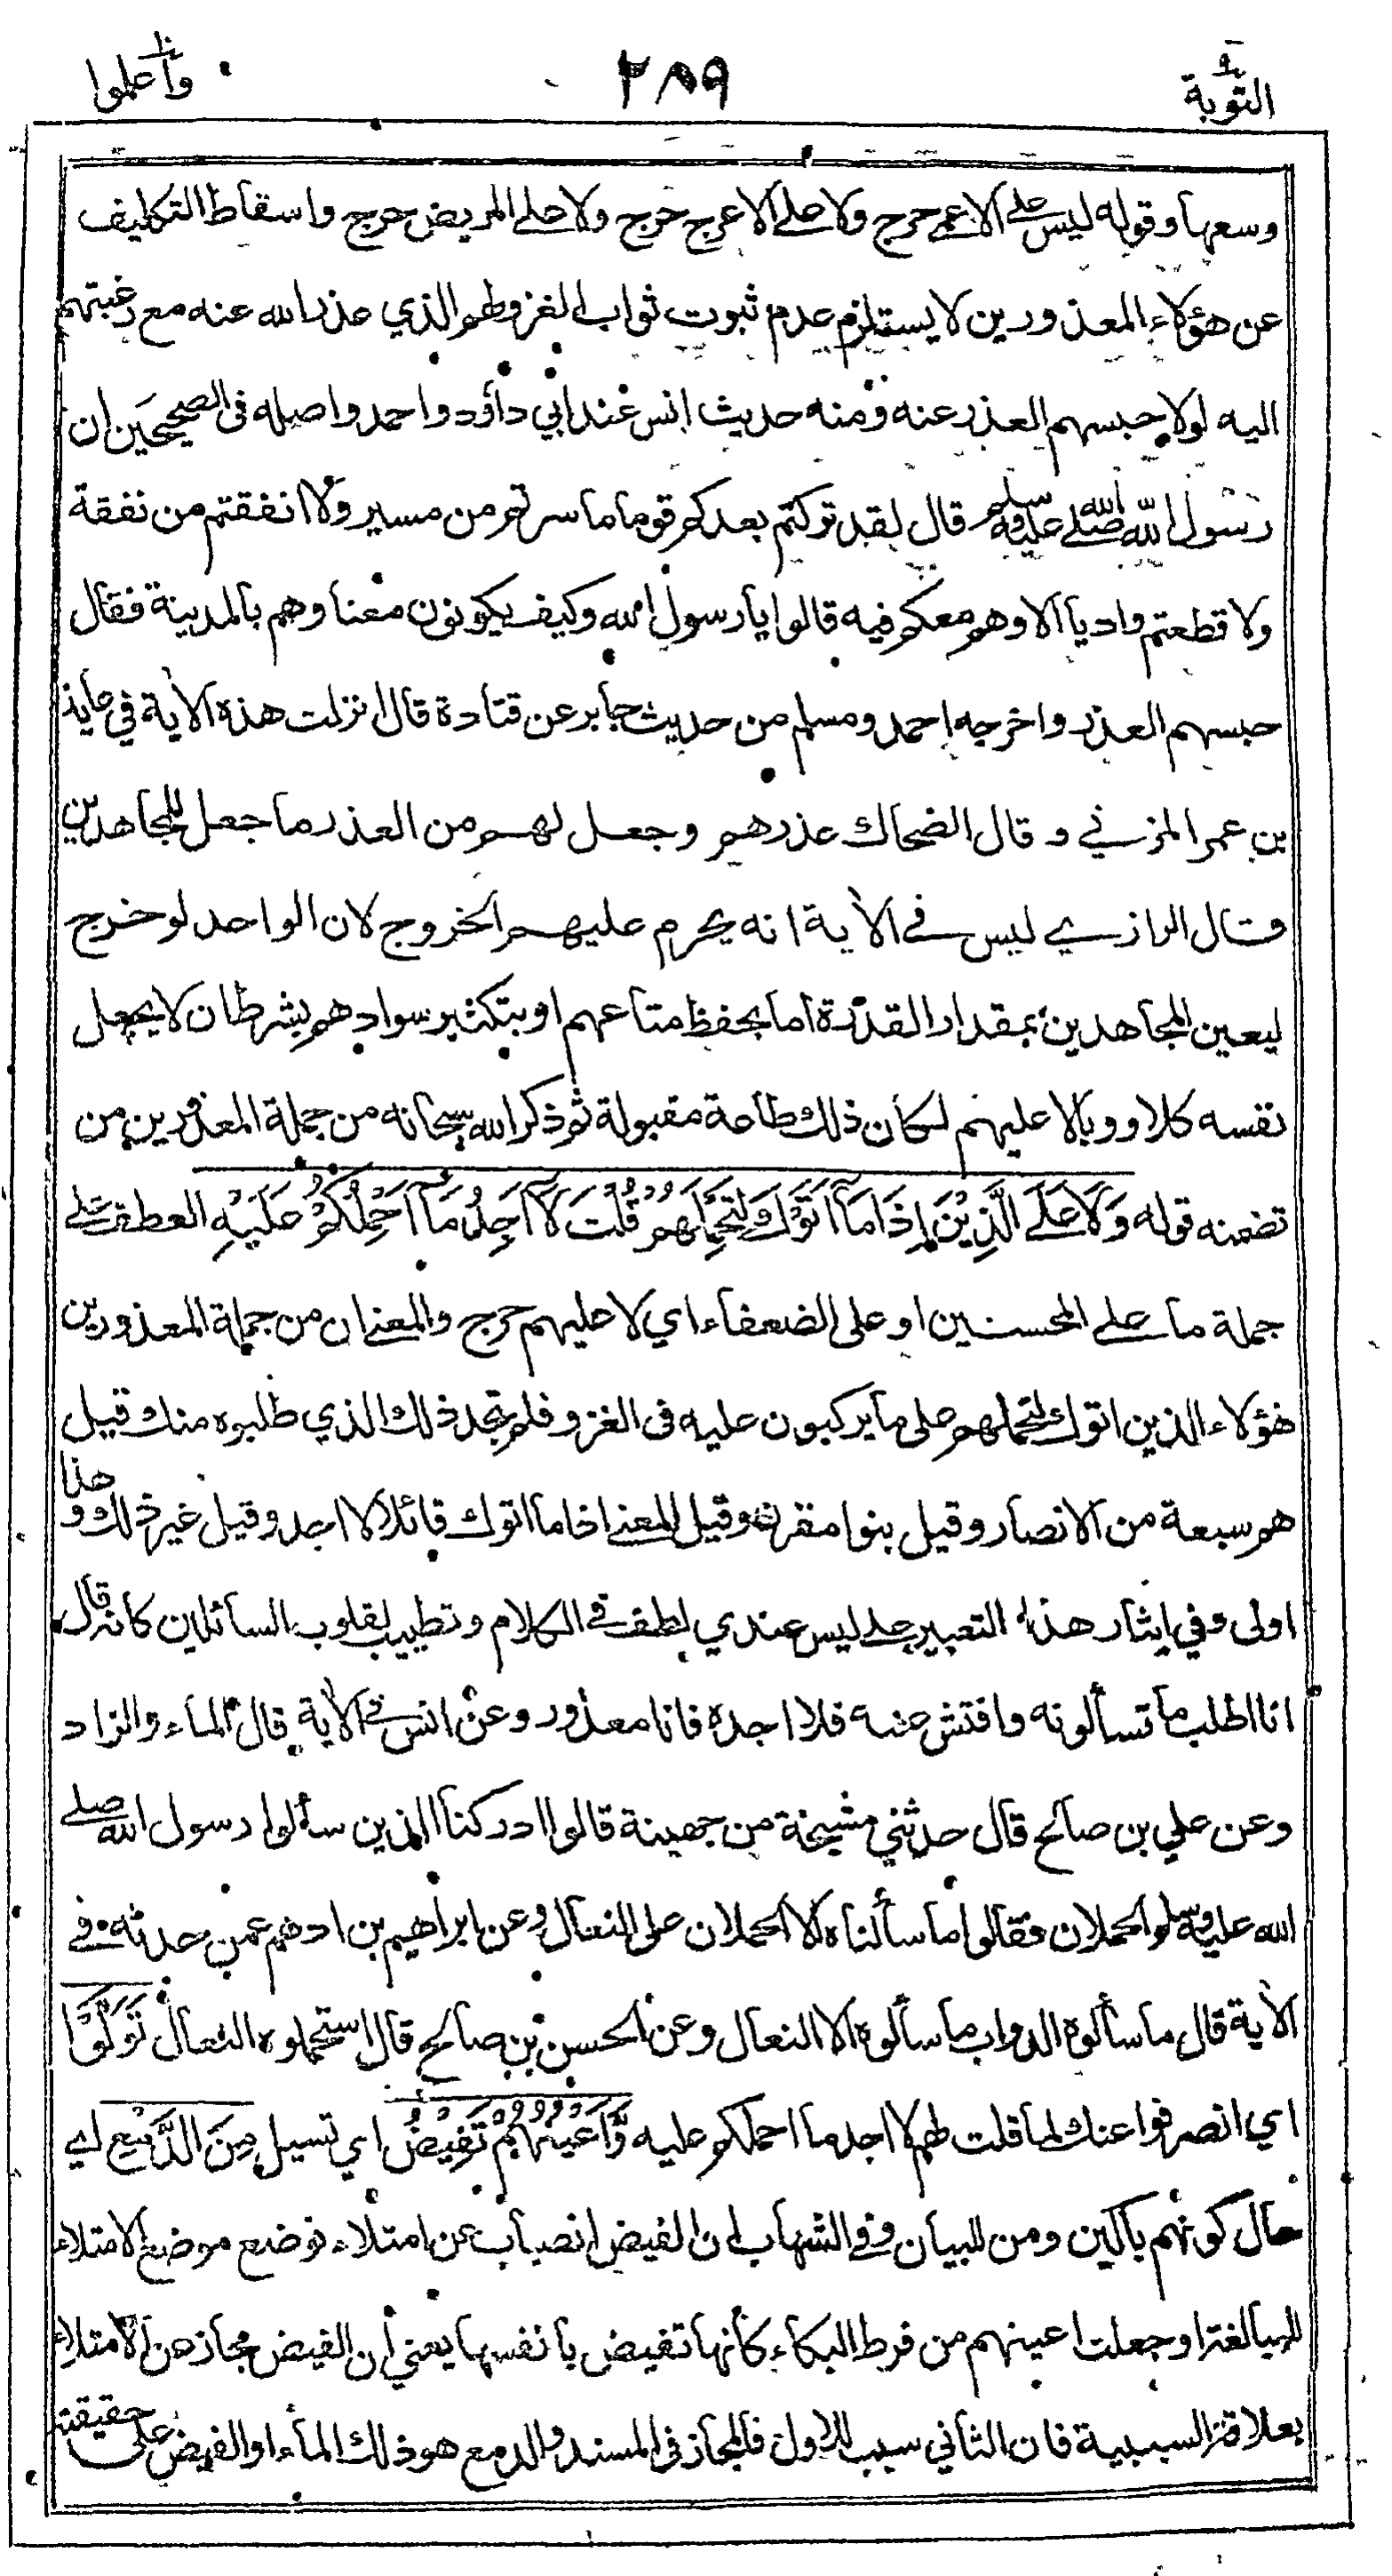 التوبة ٩
٢٨٩
واعلموا ١٠
وسعها وقوله ليس على الاعمى حرج ولا على الاعرج حرج ولا على المريض حرج واسقاط التكليف
عن هؤلاء المعذورين لا يستلزم عدم ثبوت ثواب الغزو لهم الذي عذر الله عنه مع رغبتهم
اليه لولا حبسهم العذر عنه ومنه حديث انس عند ابي داؤد واحمد واصله فى الصحيحين ان
رسول الله صلى الله عليه وسلم قال لقد تركتم بعدكم قوما ما سرتم من مسير ولا انفقتم من نفقة
ولا قطعتم واديا الا وهم معكم فيه قالوا يا رسول الله وكيف يكونون معنا وهم بالمدينة فقال
حبسهم العذر واخرجه احمد ومسلم من حديث جابر عن قتادة قال انزلت هذه الآية في عايذ
بن عمر المزني وقال الضحاك عذرهم وجعل لهم من العذر ما جعل للمجاهدين
وقال الرازي ليس في الآية انه يحرم عليهم الخروج لان الواحد لو خرج
ليعين المجاهدين بمقدار القدرة اما بحفظ متاعهم او بتكثير سوادهم بشرط ان لا يجعل
نفسه كلا ووبالا عليهم لكان ذلك طاعة مقبولة ثم ذكر الله سبحانه من جملة المعذورين من
تضمنه قوله وَلَا عَلَى الَّذِيْنَ إِذَا مَآ اَتَوْكَ لِتَحْمِلَهُمْ قُلْتَ لَآ اَجِدُ مَآ اَحْمِلُكُمْ عَلَيْهِ العطف على
جملة ما على المحسنين او على الضعفاء اي لا عليهم حرج والمعنى ان من جملة المعذورين
هؤلاء الذين اتوك لتحملهم على ما يركبون عليه فى الغزو فلم تجد ذلك الذي طلبوه منك قيل
هم سبعة من الانصار وقيل بنوا مقرن وقيل المعنى اذا ما اتوك قائلا لا اجد وقيل غير ذلك وهذا
اولى وفي ايثار هذا التعبير على ليس عندي لطف في الكلام وتطييب لقلوب السائلين كانه قال
انا اطلب ما تسألونه وافتش عنه فلا اجده فانا معذور وعن انس في الآية قال الماء والزاد
وعن علي بن صالح قال حدثني مشيخة من جهينة قالوا ادركنا الذين سألوا رسول الله صلى
الله عليه وسلم الحملان فقالوا ما سألناه الا الحملان على النعال وعن ابراهيم بن ادهم عمن حدثه في
الآية قال ما سألوه الدواب ما سألوه الا النعال وعن الحسن بن صالح قال استحملوه النعال تَوَلَّوْا
اي انصرفوا عنك لما قلت لهم لا اجد ما احملكم عليه وَّاَعْيُنُهُمْ تَفِيْضُ اي تسيل مِنَ الدَّمْعِ اي
حال كونهم باكين ومن للبيان وفي الشهاب ان الفيض انصباب عن امتلاء فوضع موضع الامتلاء
للمبالغة او جعلت اعينهم من فرط البكاء كأنها تفيض بأنفسها يعني أن الفيض مجاز عن الامتلاء
بعلاقة السببية فان الثاني سبب للاول فالمجاز فى المسند والدمع هو ذلك الماء او الفيض على حقيقته